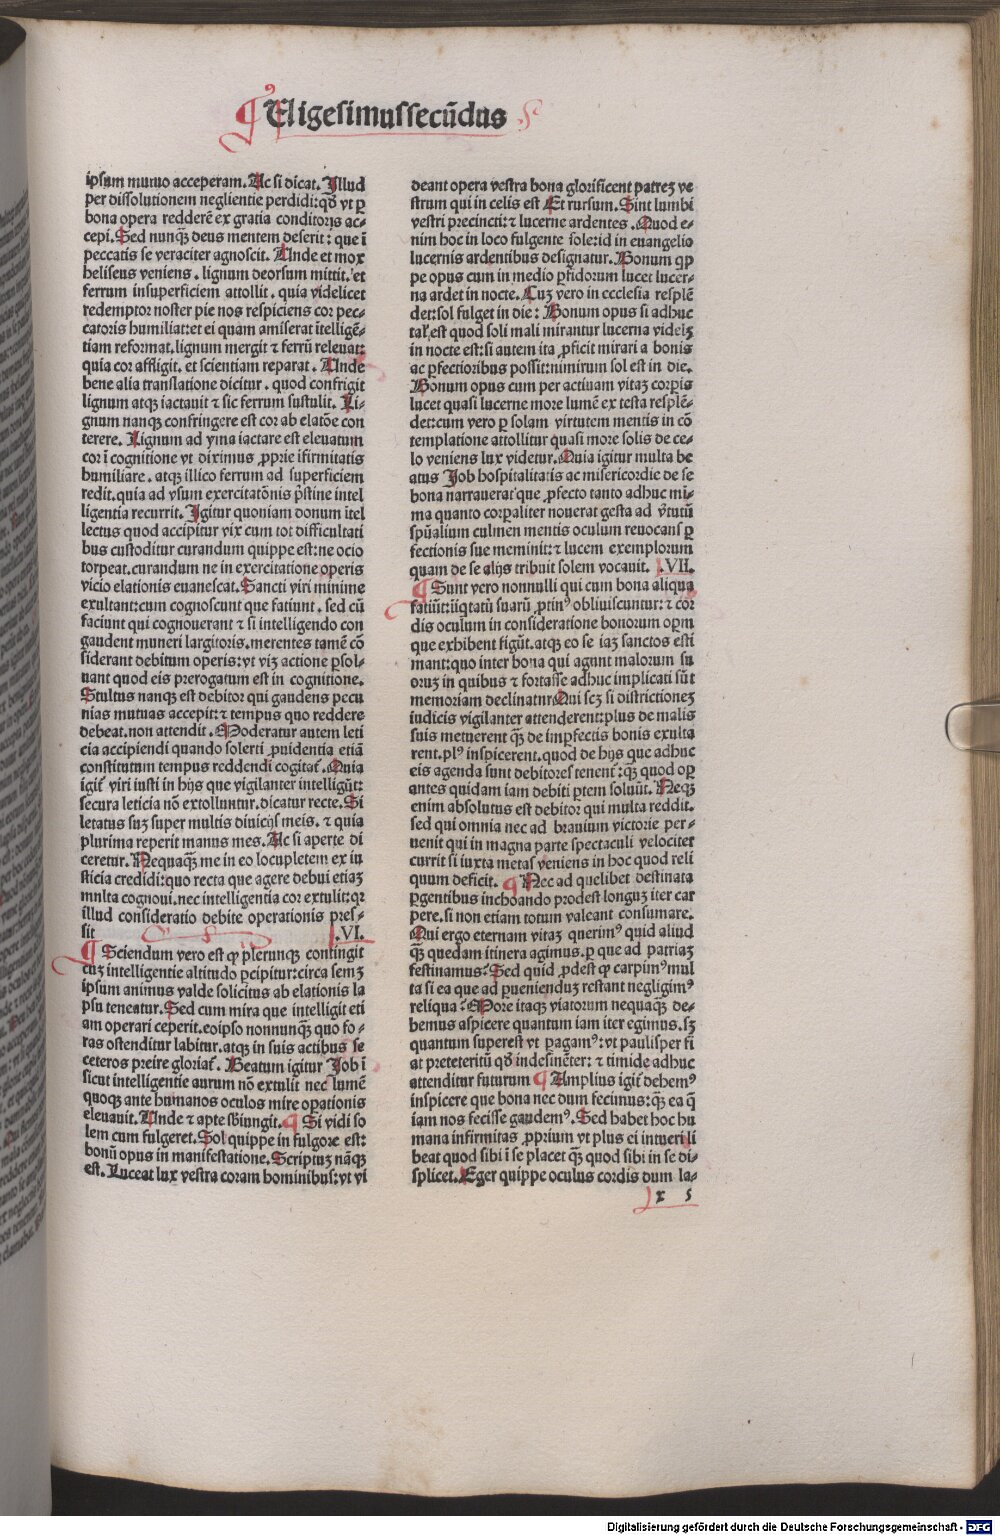 ¶ Uigesimussecūdus
ipsum mutuo acceperam. Ac si dicat. Illud
per dissolutionem neglientie perdidi: qđ vt ꝑ
bona opera redderē ex gratia conditoris ac⸗
cepi. Sed nunqꝫ deus mentem deserit: que ī
peccatis se veraciter agnoscit. Unde et mox
heliseus veniens. lignum deorsum mittit. et
ferrum insuperficiem attollit. quia videlicet
redemptor noster pie nos respiciens cor pec⸗
catoris humiliat: et ei quam amiserat ītelligē⸗
tiam reformat. lignum mergit ⁊ ferrū releuat:
quia cor affligit. et scientiam reparat. Unde
bene alia translatione dicitur. quod confrigit
lignum atqꝫ iactauit ⁊ sic ferrum sustulit. Li⸗
gnum nanqꝫ confringere est cor ab elatōe con
terere. Lignum ad yma iactare est eleuatum
cor ī cognitione vt diximus ꝓprie īfirmitatis
humiliare. atqꝫ illico ferrum ad superficiem
redit. quia ad vsum exercitatōnis p̄stine intel
ligentia recurrit. Igitur quoniam donum ītel
lectus quod accipitur vix cum tot difficultati
bus custoditur curandum quippe est: ne ocio
torpeat. curandum ne in exercitatione operis
vicio elationis euanescat. Sancti viri minime
exultant: cum cognoscunt que fatiunt. sed cū
faciunt qui cognouerant ⁊ si intelligendo con
gaudent muneri largitoris. merentes tamē cō
siderant debitum operis: vt viꝫ actione ꝑsol⸗
uant quod eis prerogatum est in cognitione.
Stultus nanqꝫ est debitor qui gaudens pecu
nias mutuas accepit: ⁊ tempus quo reddere
debeat. non attendit. Moderatur autem leti
cia accipiendi quando solerti ꝓuidentia etiā
constitutum tempus reddendi cogitat̄. Quia
igit̄ viri iusti in hijs que vigilanter intelligūt:
secura leticia nō extolluntur. dicatur recte. Si
letatus suꝫ super multis diuicijs meis. ⁊ quia
plurima reperit manus mes. Ac si aperte di
ceretur. Nequaqꝫ me in eo locupletem ex iu
sticia credidi: quo recta que agere debui etiaꝫ
mnlta cognoui. nec intelligentia cor extulit: qꝛ
illud consideratio debite operationis pres⸗
sit .VI.
¶ Sciendum vero est qꝙ plerunqꝫ contingit
cuꝫ intelligentie altitudo ꝑcipitur: circa semꝫ
ipsum animus valde solicitus ab elationis la
psu teneatur. Sed cum mira que intelligit eti
am operari ceperit. eoipso nonnunqꝫ quo fo⸗
ras ostenditur labitur. atqꝫ in suis actibus se
ceteros preire gloriat̄. Beatum igitur Job ī
sicut intelligentie aurum nō extulit nec lumē
quoqꝫ ante humanos oculos mire oꝑationis
eleuauit. Unde ⁊ apte sb̄iungit. ¶ Si vidi so
lem cum fulgeret. Sol quippe in fulgore est:
bonū opus in manifestatione. Scriptuꝫ nāqꝫ
est. Luceat lux vestra coram hominibus: vt vi
deant opera vestra bona glorificent patreꝫ ve
strum qui in celis est Et rursum. Sint lumbi
vestri precincti: ⁊ lucerne ardentes. Quod e⸗
nim hoc in loco fulgente sole: id in euangelio
lucernis ardentibus designatur. Bonum qꝑp
pe opus cum in medio ꝑfidorum lucet lucer⸗
na ardet in nocte. Cuꝫ vero in ecclesia resplē
det: sol fulget in die: Bonum opus si adhuc
tale est quod soli mali mirantur lucerna videlꝫ
in nocte est: si autem ita ꝓficit mirari a bonis
ac ꝑfectioribus possit: nimirum sol est in die.
Bonum opus cum per actiuam vitaꝫ corꝑis
lucet quasi lucerne more lumē ex testa resplē⸗
det: cum vero ꝑ solam virtutem mentis in cō
templatione attollitur quasi more solis de ce⸗
lo veniens lux videtur. Quia igitur multa be
atus Job hospitalitatis ac misericordie de se
bona narrauerat que ꝓfecto tanto adhuc mi⸗
ma quanto corꝑaliter nouerat gesta ad v̄tutū
spūalium culmen mentis oculum reuocans ꝑ
fectionis sue meminit: ⁊ lucem exemplorum
quam de se alijs tribuit solem vocauit. .VII.
¶ Sunt vero nonnulli qui cum bona aliqua
fatiūt: iīqtatū suarū ꝓtinꝰ obliuiscuntur: ⁊ cor
dis oculum in consideratione bonorum opm
que exhibent figūt. atqꝫ eo se iaꝫ sanctos esti
mant: quo inter bona qui agunt malorum su
oruꝫ in quibus ⁊ fortasse adhuc implicati sūt
memoriam declinatnr. Qui seꝫ si districtioneꝫ
iudicis vigilanter attenderent: plus de malis
suis metuerent qꝫ de imꝑfectis bonis exulta
rent. plꝰ inspicerent. quod de hijs que adhuc
eis agenda sunt debitores tenent̄: qꝫ quod oꝑ
antes quidam iam debiti ꝑtem soluūt. Neqꝫ
enim absolutus est debitor qui multa reddit.
sed qui omnia nec ad brauium victorie per⸗
uenit qui in magna parte spectaculi velociter
currit si iuxta metas veniens in hoc quod reli
quum deficit. ¶ Nec ad quelibet destinata
ꝑgentibus inchoando prodest longuꝫ iter car
pere. si non etiam totum valeant consumare.
Qui ergo eternam vitaꝫ querimꝰ quid aliud
qꝫ quedam itinera agimus. ꝑ que ad patriaꝫ
festinamus? Sed quid ꝓdest qꝙ carpimꝰ mul
ta si ea que ad ꝑueniendꝫ restant negligimꝰ
reliqua? More itaqꝫ viatorum nequaqꝫ de⸗
bemus aspicere quantum iam iter egimus. sꝫ
quantum superest vt ꝑagamꝰ: vt paulisper fi
at preteteritū qđ indesinēter: ⁊ timide adhuc
attenditur futurum ¶ Amplius igit̄ debemꝰ
inspicere que bona nec dum fecimus: qꝫ ea q̄
iam nos fecisse gaudemꝰ. Sed habet hoc hu
mana infirmitas ꝓprium vt plus ei intueri li
beat quod sibi ī se placet qꝫ quod sibi in se di⸗
splicet. Eger quippe oculus cordis dum la⸗
x 5
Digitalisierung gefördert durch die Deutsche Forschungsgemeinschaft - DFG